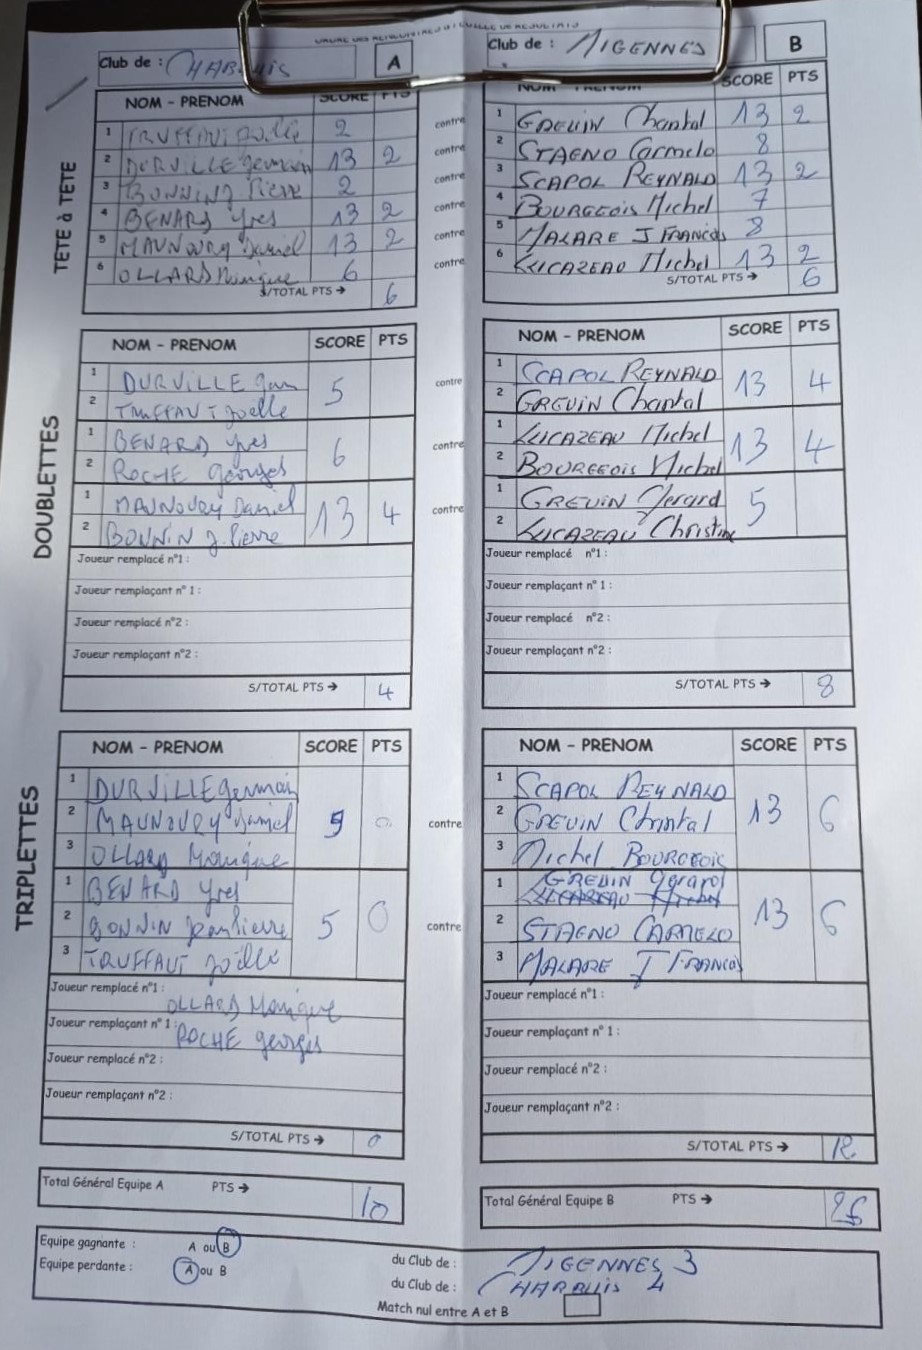 FEUILLE DE RESULTATS
Club de : CHARBUIS A
Club de : MIGENNES B
TETE à TETE
NOM - PRENOM SCORE PTS
1 TRUFFAUT Joëlle 2
2 DURVILLE germain 13 2
3 BONNIN J. Pierre 2
4 BENARD Yves 13 2
5 MAUNOURY Daniel 13 2
6 OLLARD Monique 6
S/TOTAL PTS → 6
contre
contre
contre
contre
contre
contre
NOM - PRENOM SCORE PTS
1 GREUIN Chantal 13 2
2 STAGNO Carmelo 8
3 SCAPOL REYNALD 13 2
4 BOURGEOIS Michel 7
5 MALARE J FRANCOIS 8
6 LUCAZEAU Michel 13 2
S/TOTAL PTS → 6
DOUBLETTES
NOM - PRENOM SCORE PTS
1 DURVILLE ger 5
2 TRUFFAUT Joëlle
1 BENARD Yves 6
2 ROCHE georges
1 MAUNOURY Daniel 13 4
2 BONNIN J. Pierre
Joueur remplacé n°1 :
Joueur remplaçant n° 1 :
Joueur remplacé n°2 :
Joueur remplaçant n°2 :
S/TOTAL PTS → 4
contre
contre
contre
NOM - PRENOM SCORE PTS
1 SCAPOL REYNALD 13 4
2 GREVIN Chantal
1 LUCAZEAU Michel 13 4
2 BOURGEOIS Michel
1 GREVIN Gerard 5
2 LUCAZEAU Christine
Joueur remplacé n°1 :
Joueur remplaçant n° 1 :
Joueur remplacé n°2 :
Joueur remplaçant n°2 :
S/TOTAL PTS → 8
TRIPLETTES
NOM - PRENOM SCORE PTS
1 DURVILLE germain
2 MAUNOURY Daniel 5 0
3 OLLARD Monique
1 BENARD Yves
2 BONNIN Jean Pierre 5 0
3 TRUFFAUT Joëlle
Joueur remplacé n°1 : OLLARD Monique
Joueur remplaçant n° 1 : ROCHE georges
Joueur remplacé n°2 :
Joueur remplaçant n°2 :
S/TOTAL PTS → 0
contre
contre
NOM - PRENOM SCORE PTS
1 SCAPOL REYNALD
2 GREVIN Chantal 13 6
3 Michel BOURGEOIS
1 GREVIN Gerard
2 STAGNO CARMELO 13 6
3 MALARE J FRANCOIS
Joueur remplacé n°1 :
Joueur remplaçant n° 1 :
Joueur remplacé n°2 :
Joueur remplaçant n°2 :
S/TOTAL PTS → 12
Total Général Equipe A PTS → 10
Total Général Equipe B PTS → 26
Equipe gagnante : A ou B du Club de : MIGENNES 3
Equipe perdante : A ou B du Club de : CHARBUIS 4
Match nul entre A et B